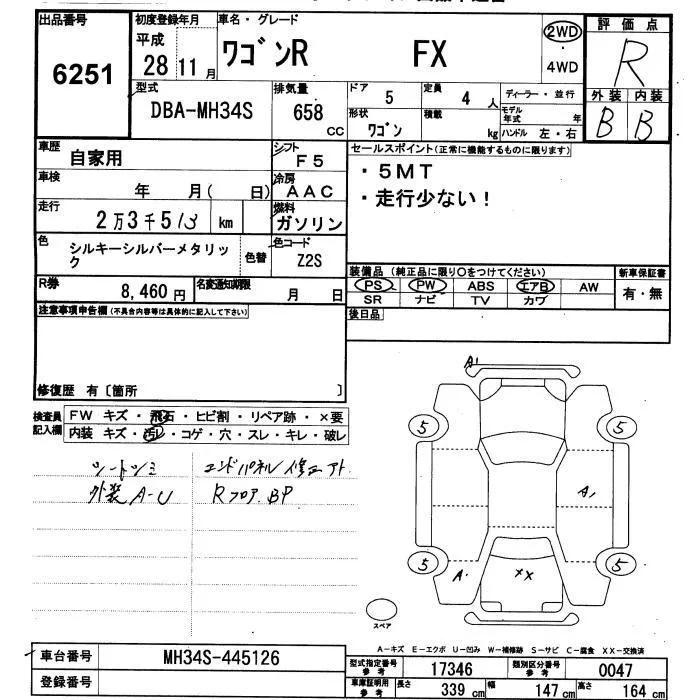 出品番号
6251
初度登録年月
平成
28 11月
車名・グレード
ワゴンR FX
2WD
・
4WD
評価点
R
外装 内装
B B
型式
DBA-MH34S
排気量
658
CC
ドア
5
定員
4 人
形状
ワゴン
積載
kg
ディーラー・並行
モデル年式 年
ハンドル 左・右
車歴
自家用
シフト
F5
車検
年 月( 日)
冷房
AAC
走行
2万3千513 km
燃料
ガソリン
色
シルキーシルバーメタリック
色替
色コード
Z2S
R券
8,460 円
名変通知期限
月 日
セールスポイント(正常に機能するものに限ります)
・5MT
・走行少ない!
装備品(純正品に限り○をつけてください)
PS PW ABS エアB AW
SR ナビ TV カワ
新車保証書
有・無
後日品
注意事項申告欄(不具合内容等は具体的に記入して下さい)
修復歴 有〔箇所 〕
検査員記入欄
FW キズ・飛石・ヒビ割・リペア跡・×要
内装 キズ・汚レ・コゲ・穴・スレ・キレ・破レ
シートシミ
外装A-U
エンドパネル修
Rフロア BP
A1
5
5
A1
5
5
A1
××
スペア
A-キズ E-エクボ U-凹み W-補修跡 S-サビ C-腐食 XX-交換済
車台番号
MH34S-445126
登録番号
型式指定番号
参考
17346
類別区分番号
参考
0047
車庫証明用
参考
長さ
339 cm
幅
147 cm
高さ
164 cm